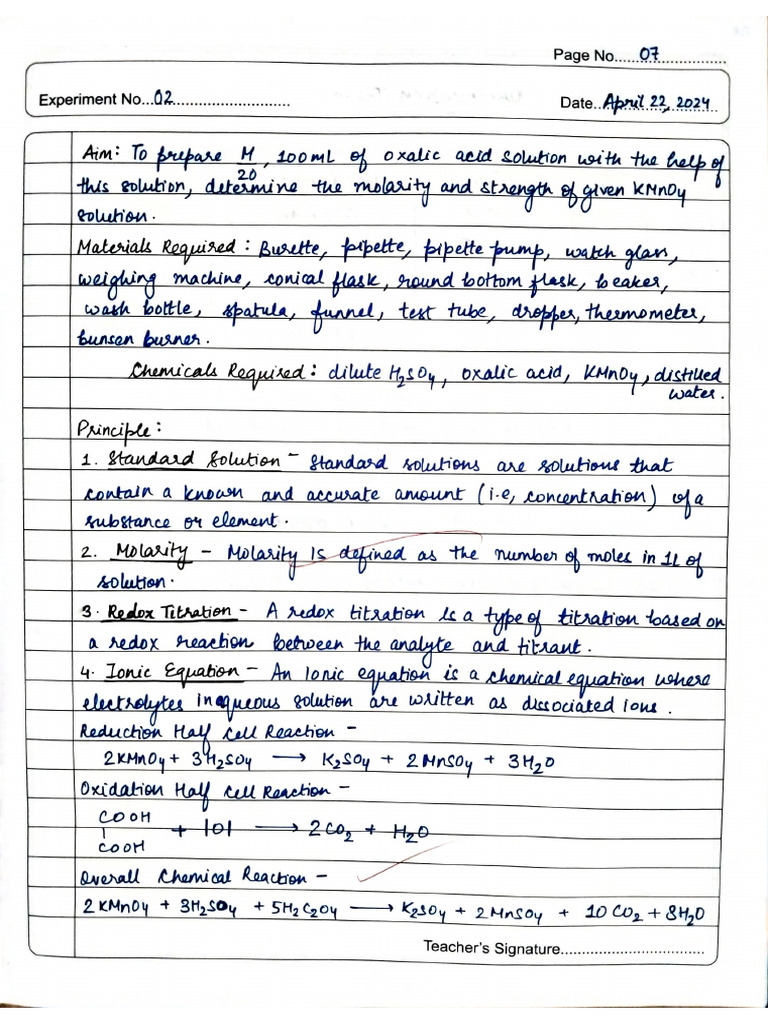 Page No......07................
Experiment No...02..........................
Date..April 22, 2024
Aim: To prepare M/20, 100mL of oxalic acid solution with the help of
this solution, determine the molarity and strength of given KMnO4
solution.
Materials Required: Burette, pipette, pipette pump, watch glass,
weighing machine, conical flask, round bottom flask, beaker,
wash bottle, spatula, funnel, test tube, dropper, thermometer,
bunsen burner.
Chemicals Required: dilute H2SO4, oxalic acid, KMnO4, distilled
water.
Principle:
1. Standard Solution - Standard solutions are solutions that
contain a known and accurate amount (i.e, concentration) of a
substance or element.
2. Molarity - Molarity is defined as the number of moles in 1L of
solution.
3. Redox Titration - A redox titration is a type of titration based on
a redox reaction between the analyte and titrant.
4. Ionic Equation - An Ionic equation is a chemical equation where
electrolytes in aqueous solution are written as dissociated ions.
Reduction Half Cell Reaction -
2KMnO4 + 3H2SO4 → K2SO4 + 2MnSO4 + 3H2O
Oxidation Half Cell Reaction -
COOH
| + |O| → 2CO2 + H2O
COOH
Overall Chemical Reaction -
2KMnO4 + 3H2SO4 + 5H2C2O4 → K2SO4 + 2MnSO4 + 10CO2 + 8H2O
Teacher's Signature..................................